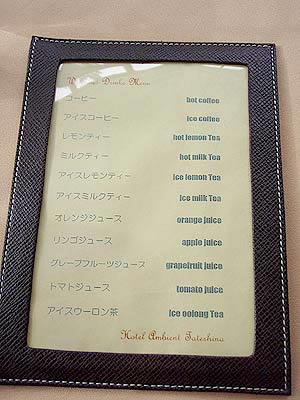 Drinks Menu
コーヒー hot coffee
アイスコーヒー ice coffee
レモンティー hot lemon Tea
ミルクティー hot milk Tea
アイスレモンティー ice lemon Tea
アイスミルクティー ice milk Tea
オレンジジュース orange juice
リンゴジュース apple juice
グレープフルーツジュース grapefruit juice
トマトジュース tomato juice
アイスウーロン茶 ice oolong Tea
Hotel Ambient Tateshina